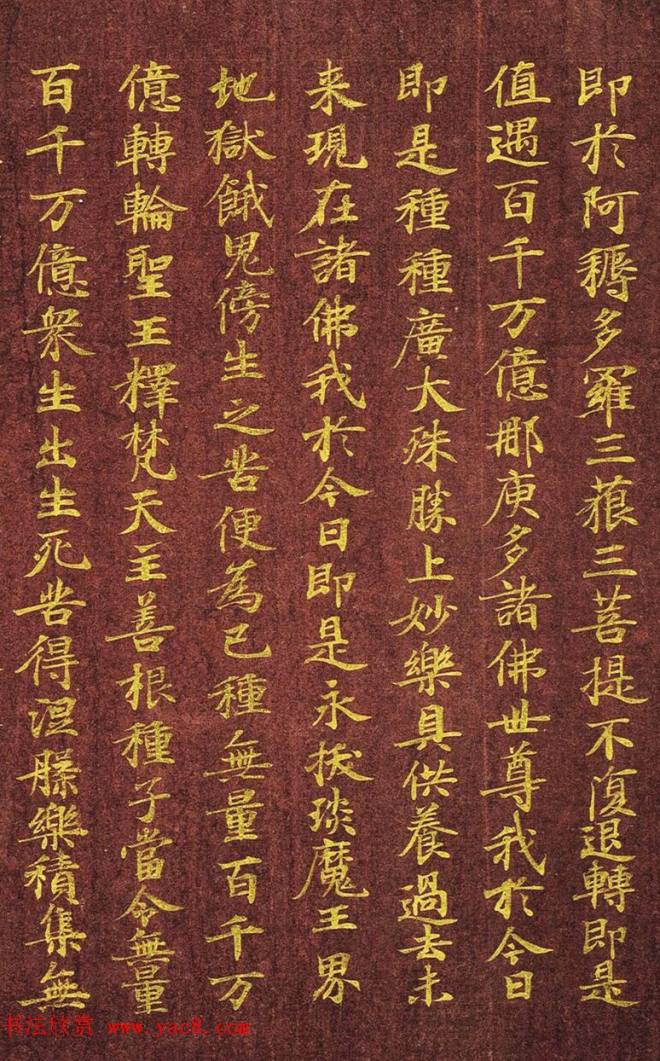 即於阿耨多羅三藐三菩提不復退轉即是
值遇百千万億那庾多諸佛世尊我於今日
即是種種廣大殊勝上妙樂具供養過去未
来現在諸佛我於今日即是永拔琰魔王界
地獄餓鬼傍生之苦便為已種無量百千万
億轉輪聖王釋梵天主善根種子當令無量
百千万億衆生出生死苦得涅槃樂積集無
书法欣赏 www.yac8.com